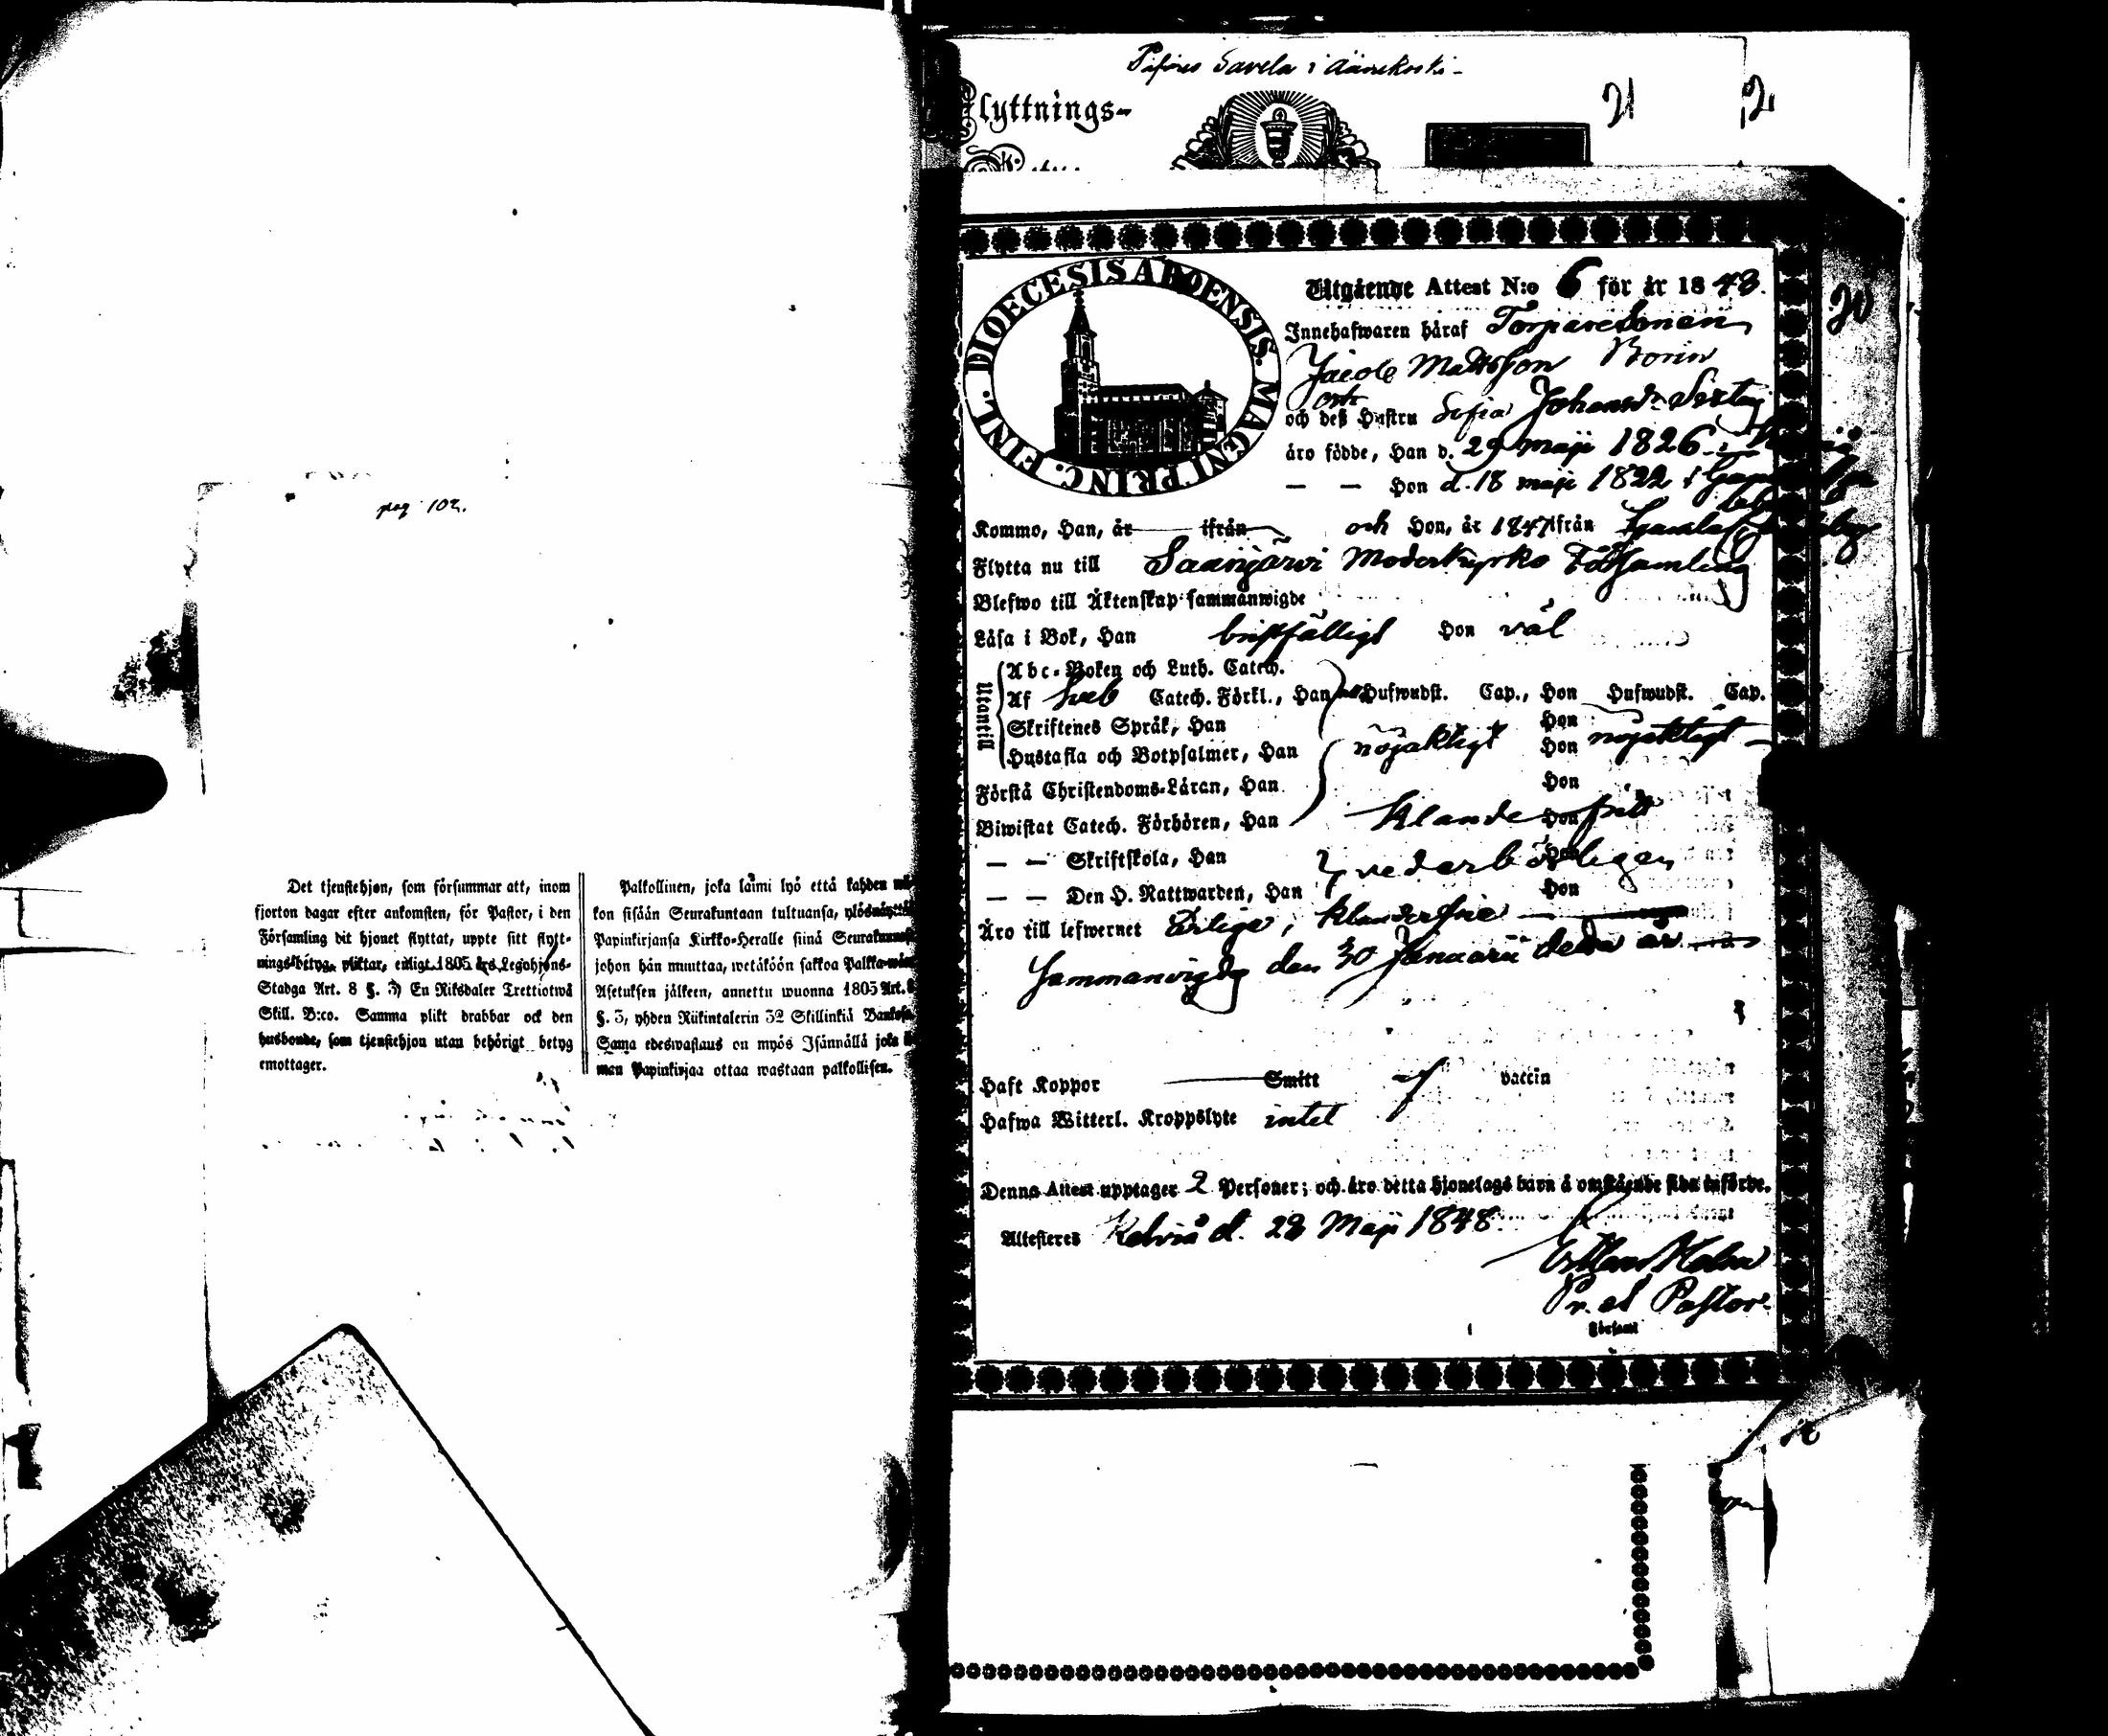 pag 102.
Det tjenstehjon, som försummar att, inom
fjorton dagar efter ankomsten, för Pastor, i den
Församling dit hjonet flyttat, uppte sitt flytt-
ningsbetyg, pliktar, enligt 1805 års Legohjons-
Stadga Art. 8 §. 3, En Riksdaler Trettiotwå
Skill. B:co. Samma plikt drabbar ock den
husbonde, som tjenstehjon utan behörigt betyg
emottager.
Palkollinen, joka laimi lyö että kahden
kon sisään Seurakuntaan tultuansa,
Papinkirjansa Kirkko-Heralle siinä
johon hän muuttaa, wetäköön sakkoa
Asetuksen jälkeen, annettu wuonna 1805 Art.
§. 3, yhden Riikintalerin 32 Skillinkiä
Sama edeswastaus on myös Isännällä joka
man Papinkirjaa ottaa wastaan palkollisen.
Savela i Äänekoski
Flyttnings-
21
DIOECESIS ABOENSIS. MAGNI PRINC. FINL.
Utgående Attest N:o 6 för år 1848.
20
Innehafwaren häraf Torparesonen
Jacob Mattsson Borin
och
och deß Hustru Sofia Johansdr
äro födde, Han d. 29 maji 1826
— — Hon d. 18 maji 1822 i
Kommo, Han, år — ifrån och Hon, år 1847 ifrån
Flytta nu till Saarijärvi Moderkyrko Församling
Blefwo till Äktenskap sammanwigde
Läsa i Bok, Han bristfälligt Hon väl
Utantill
Abc-Boken och Luth. Catech.
Af Catech. Förkl., Han Hufwudst. Cap., Hon Hufwudst. Cap.
Skriftenes Språk, Han Hon
Hustafla och Botpsalmer, Han nöjaktigt Hon nöjaktigt
Förstå Christendoms-Läran, Han Hon
Biwistat Catech. Förhören, Han klanderfritt Hon
— — Skriftskola, Han vederbörligen
— — Den H. Nattwarden, Han Hon
Äro till lefwernet Ärlige, klanderfrie
Sammanvigde den 30 Januarii detta år
Haft Koppor — Smitt vaccin
Hafwa Witterl. Kroppslyte intet
Denna Attest upptager 2 Personer; och äro detta hjonelags barn å omstående sida införde.
Attesteres Kelviå d. 28 Maji 1848.
Pr. et Pastor.
Församl